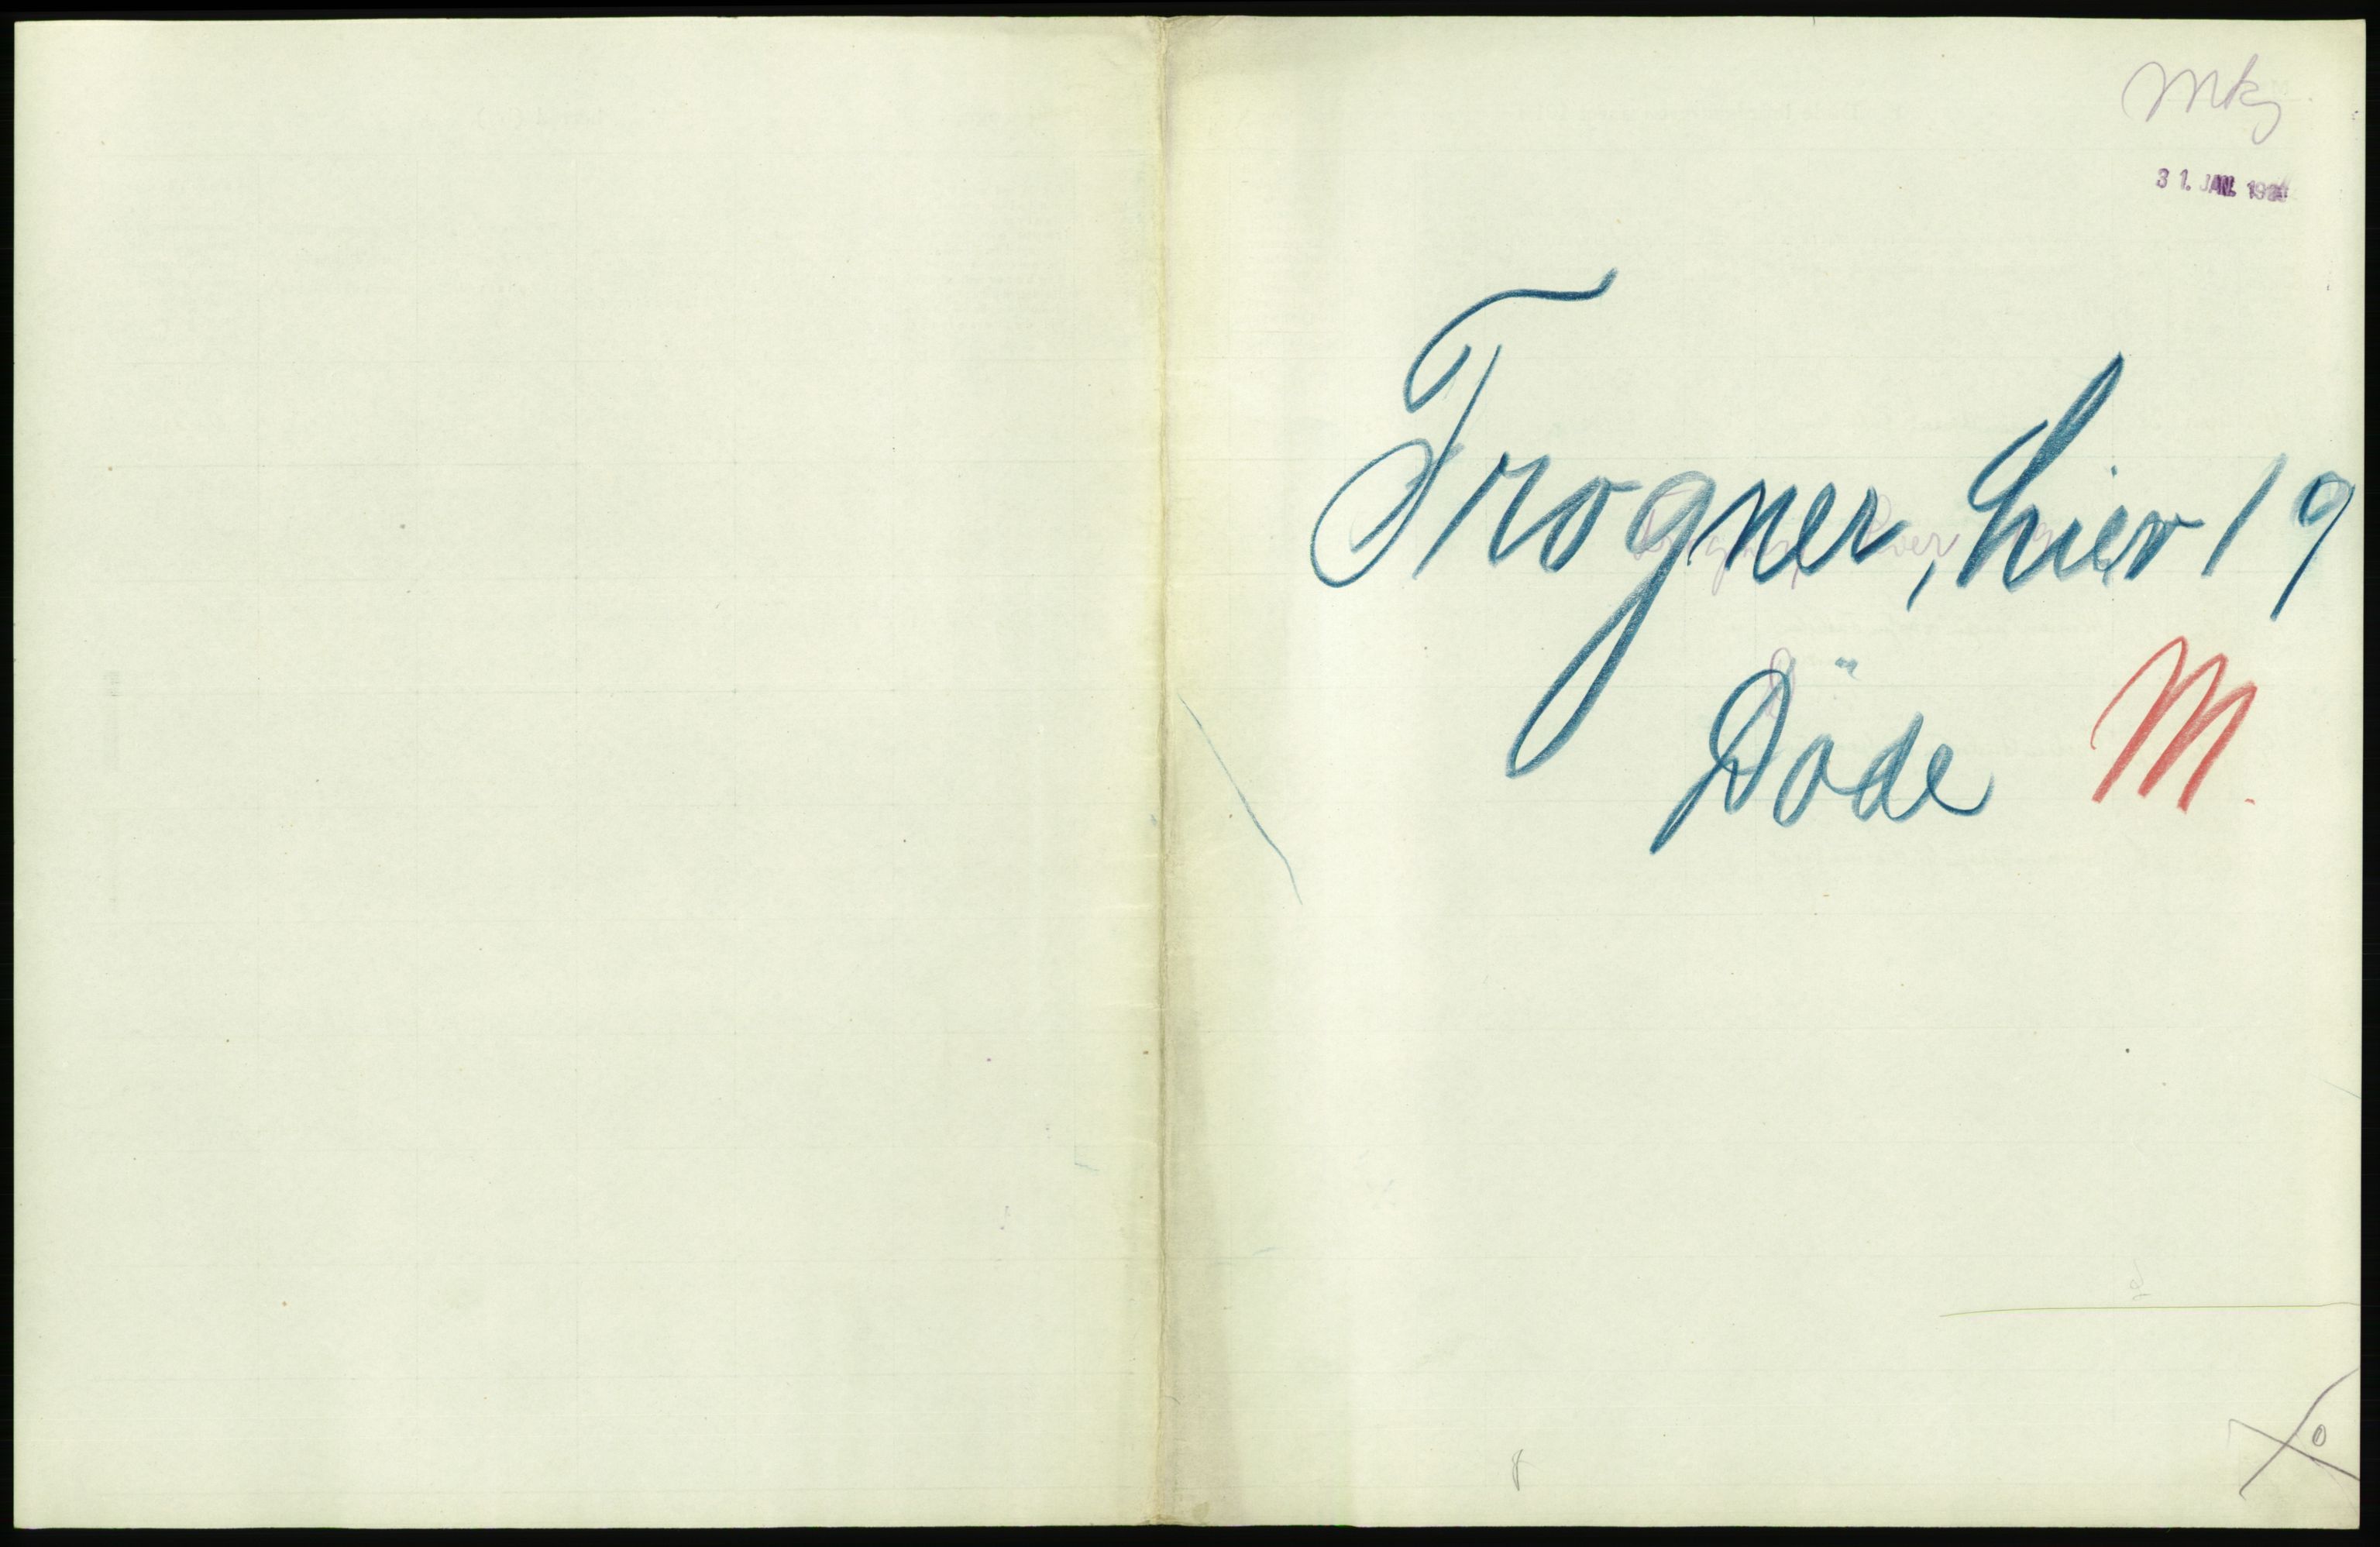 Mkg
31. JAN.
Frogner, hier 19
Döde M.
8